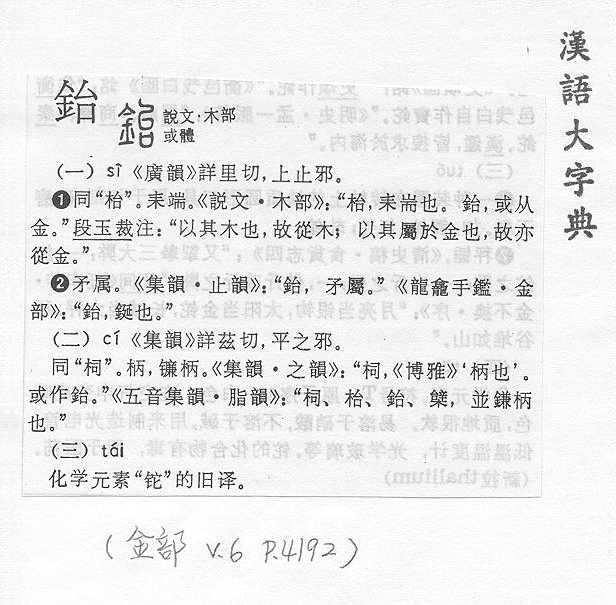 漢語大字典
鈶 說文·木部
或體
(一) sì《廣韻》詳里切,上止邪。
❶同“枱”。耒端。《説文·木部》:“枱,耒耑也。鈶,或从
金。”段玉裁注:“以其木也,故從木;以其屬於金也,故亦
從金。”
❷矛属。《集韻·止韻》:“鈶,矛屬。”《龍龕手鑑·金
部》:“鈶,鋋也。”
(二) cí《集韻》詳兹切,平之邪。
同“柌”。柄,镰柄。《集韻·之韻》:“柌,《博雅》‘柄也’。
或作鈶。”《五音集韻·脂韻》:“柌、枱、鈶、㰇,並鎌柄
也。”
(三) tái
化学元素“铊”的旧译。
(金部 V.6 P.4192)